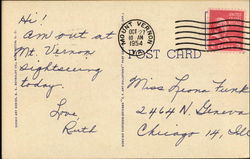 Hi!
Am out at
Mt. Vernon
Sightseeing
today.
Love
Ruth
MOUNT VERNON
OCT 27
10 AM
1954
VA.
POST CARD
Miss Leona Funk
2464 N. Geneva
Chicago 14, Ill